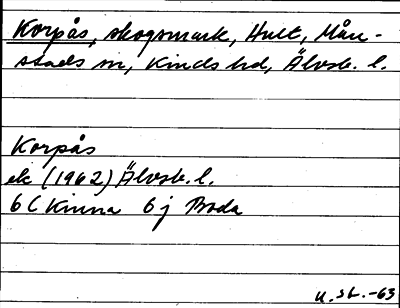 Korpås, skogsmark, Hult, Mån-
stads sn, Kinds hd, Älvsb. l.
Korpås
ek (1962) Älvsb. l.
6 C Kinna 6 j Boda
U. St. -63